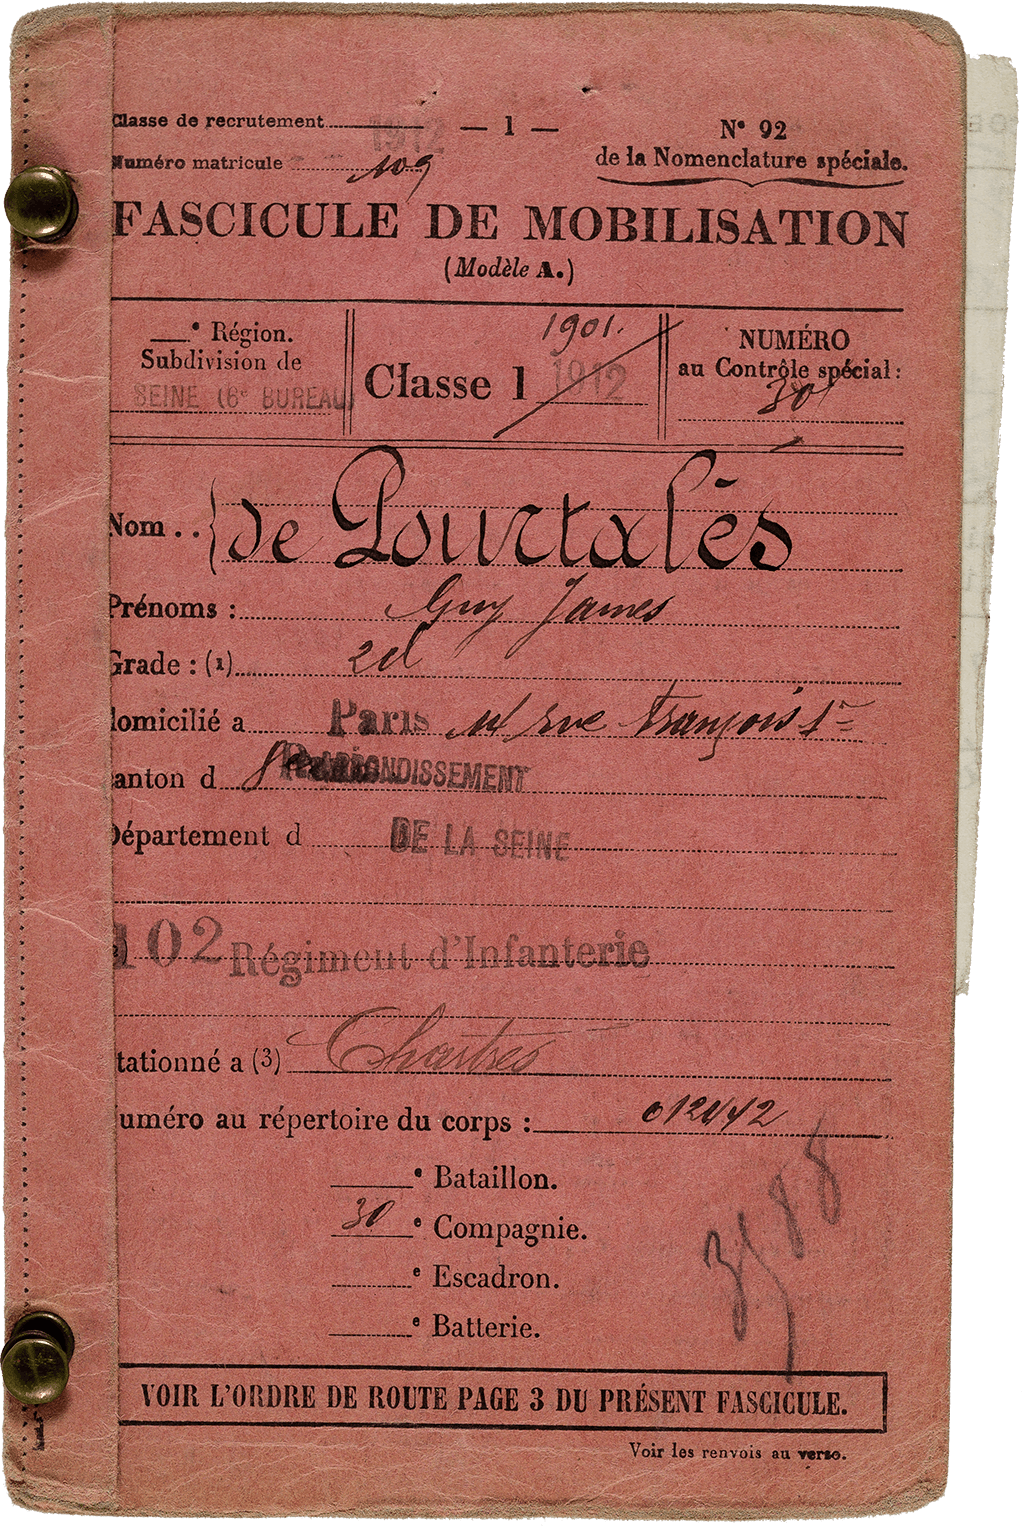 Classe de recrutement 1912
— 1 —
N° 92
Numéro matricule 109
de la Nomenclature spéciale.
FASCICULE DE MOBILISATION
(Modèle A.)
e Région.
Subdivision de
SEINE (6e BUREAU)
1901.
Classe 1 1912
NUMÉRO
au Contrôle spécial :
301
Nom .. de Pourtalès
Prénoms : Guy James
Grade : (1) 2cl
domicilié a Paris 14 rue François 1er
canton d 8e ARRONDISSEMENT
Département d DE LA SEINE
102 Régiment d'Infanterie
stationné a (3) Chartres
Numéro au répertoire du corps : 012442
e Bataillon.
30 e Compagnie.
e Escadron.
e Batterie.
3988
VOIR L'ORDRE DE ROUTE PAGE 3 DU PRÉSENT FASCICULE.
Voir les renvois au verso.